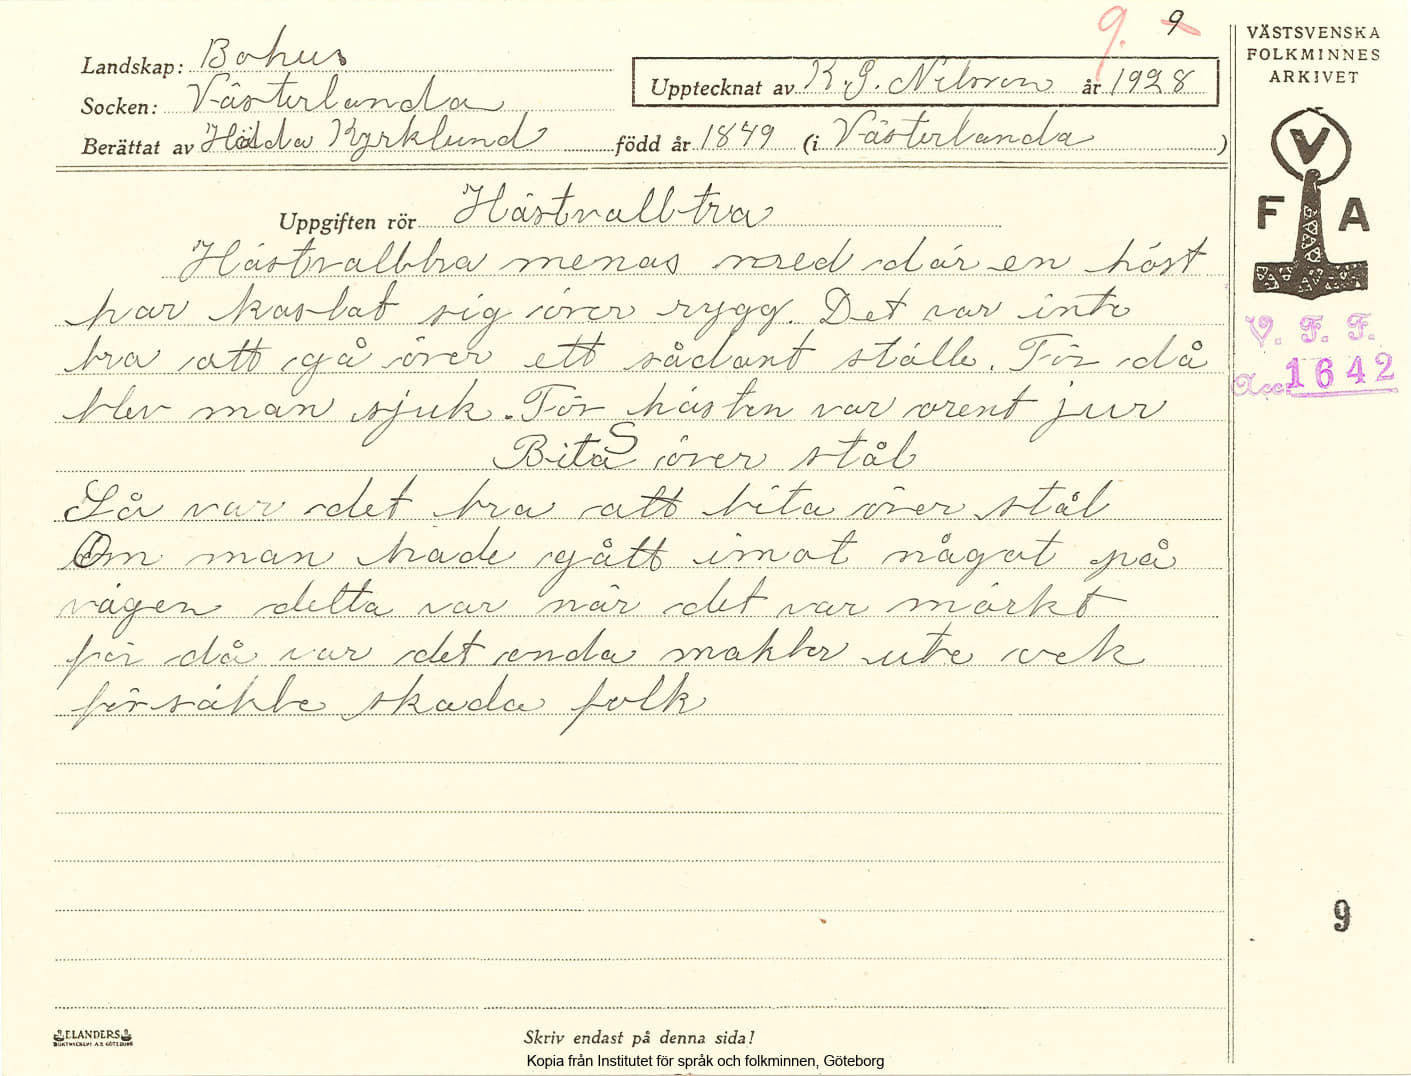 9. 9
Landskap: Bohus
Socken: Västerlanda
Upptecknat av K. G. Nilsson år 1928
Berättat av Hilda Kyrklund född år 1849 (i Västerlanda )
VÄSTSVENSKA
FOLKMINNES
ARKIVET
V
F A
V. F. F.
Acc. 1642
Uppgiften rör Hästvalltra
Hästvalltra menas med där en häst
har kastat sig över rygg. Det var inte
bra att gå över ett sådant ställe. För då
blev man sjuk. För hästen var orent jur
Bita S över stål
Så var det bra att bita över stål
Om man hade gått imot något på
vägen detta var när det var mörkt
för då var det onda makter ute ock
försökte skada folk
9
ELANDERS
BOKTRYCKERI A.B. GÖTEBORG
Skriv endast på denna sida!
Kopia från Institutet för språk och folkminnen, Göteborg